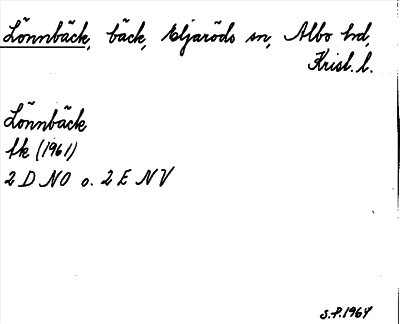 Lönnbäck, bäck, Eljaröds sn, Albo hd,
Krist. l.
Lönnbäck
fk (1961)
2 D NO o. 2 E NV
S.P. 1964